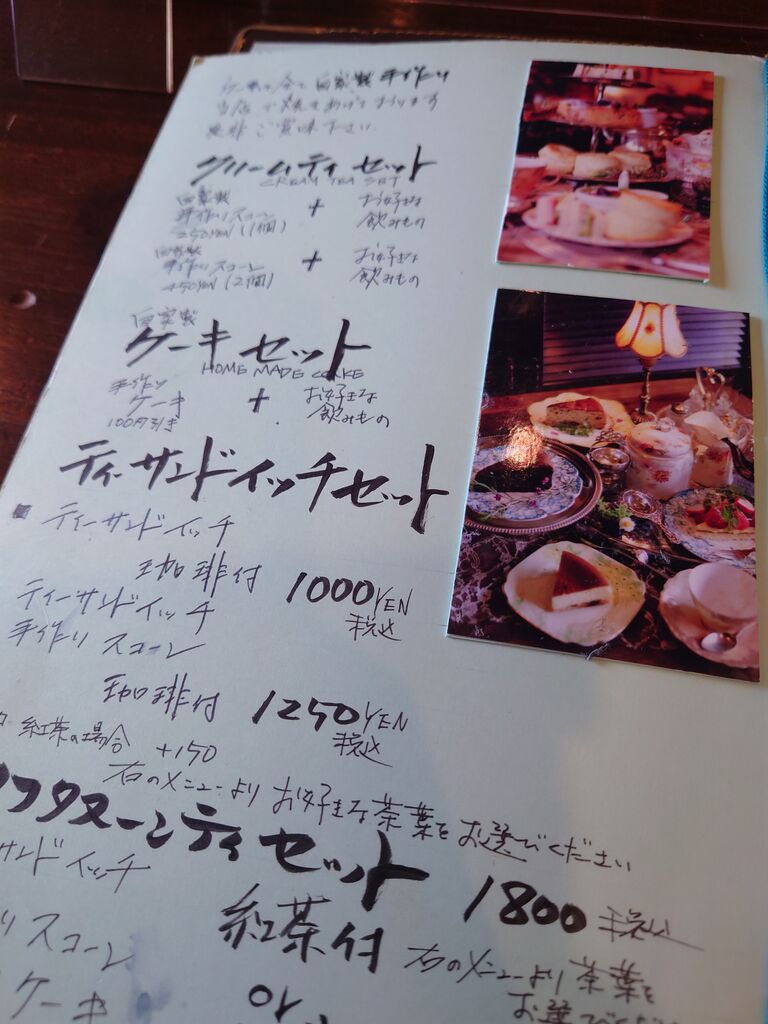 ケーキは全て自家製手作り
当店で焼きあげております
是非ご賞味下さい
クリームティセット
CREAM TEA SET
自家製
手作りスコーン + お好きな
250YEN(1個) 飲みもの
自家製
手作りスコーン + お好きな
450YEN(2個) 飲みもの
自家製
ケーキセット
HOME MADE CAKE
手作り
ケーキ + お好きな
100円引き 飲みもの
ティーサンドイッチセット
ティーサンドイッチ
珈琲付 1000YEN
税込
ティーサンドイッチ
手作りスコーン
珈琲付 1250YEN
税込
紅茶の場合 +150
右のメニューよりお好きな茶葉をお選びください
フタヌーンティセット
サンドイッチ
1800税込
スコーン 紅茶付
右のメニューより茶葉を
ケーキ or
お選びくだ